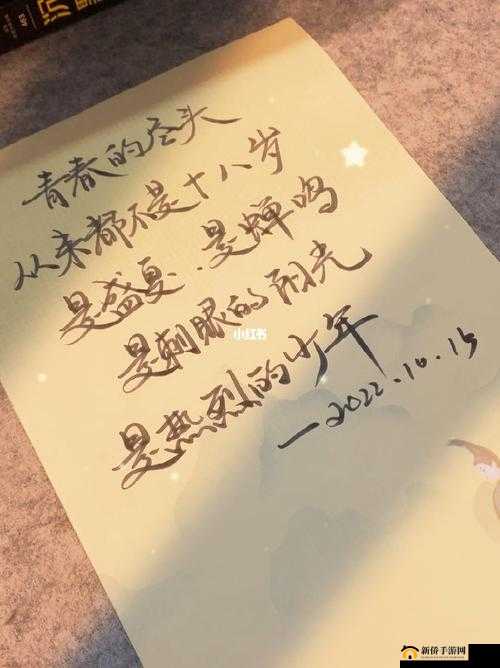 青春的尽头
从来都不是十八岁
是盛夏.是蝉鸣
是刺眼的阳光
是热烈的少年
—2022.10.15
小红书
新侨手游网